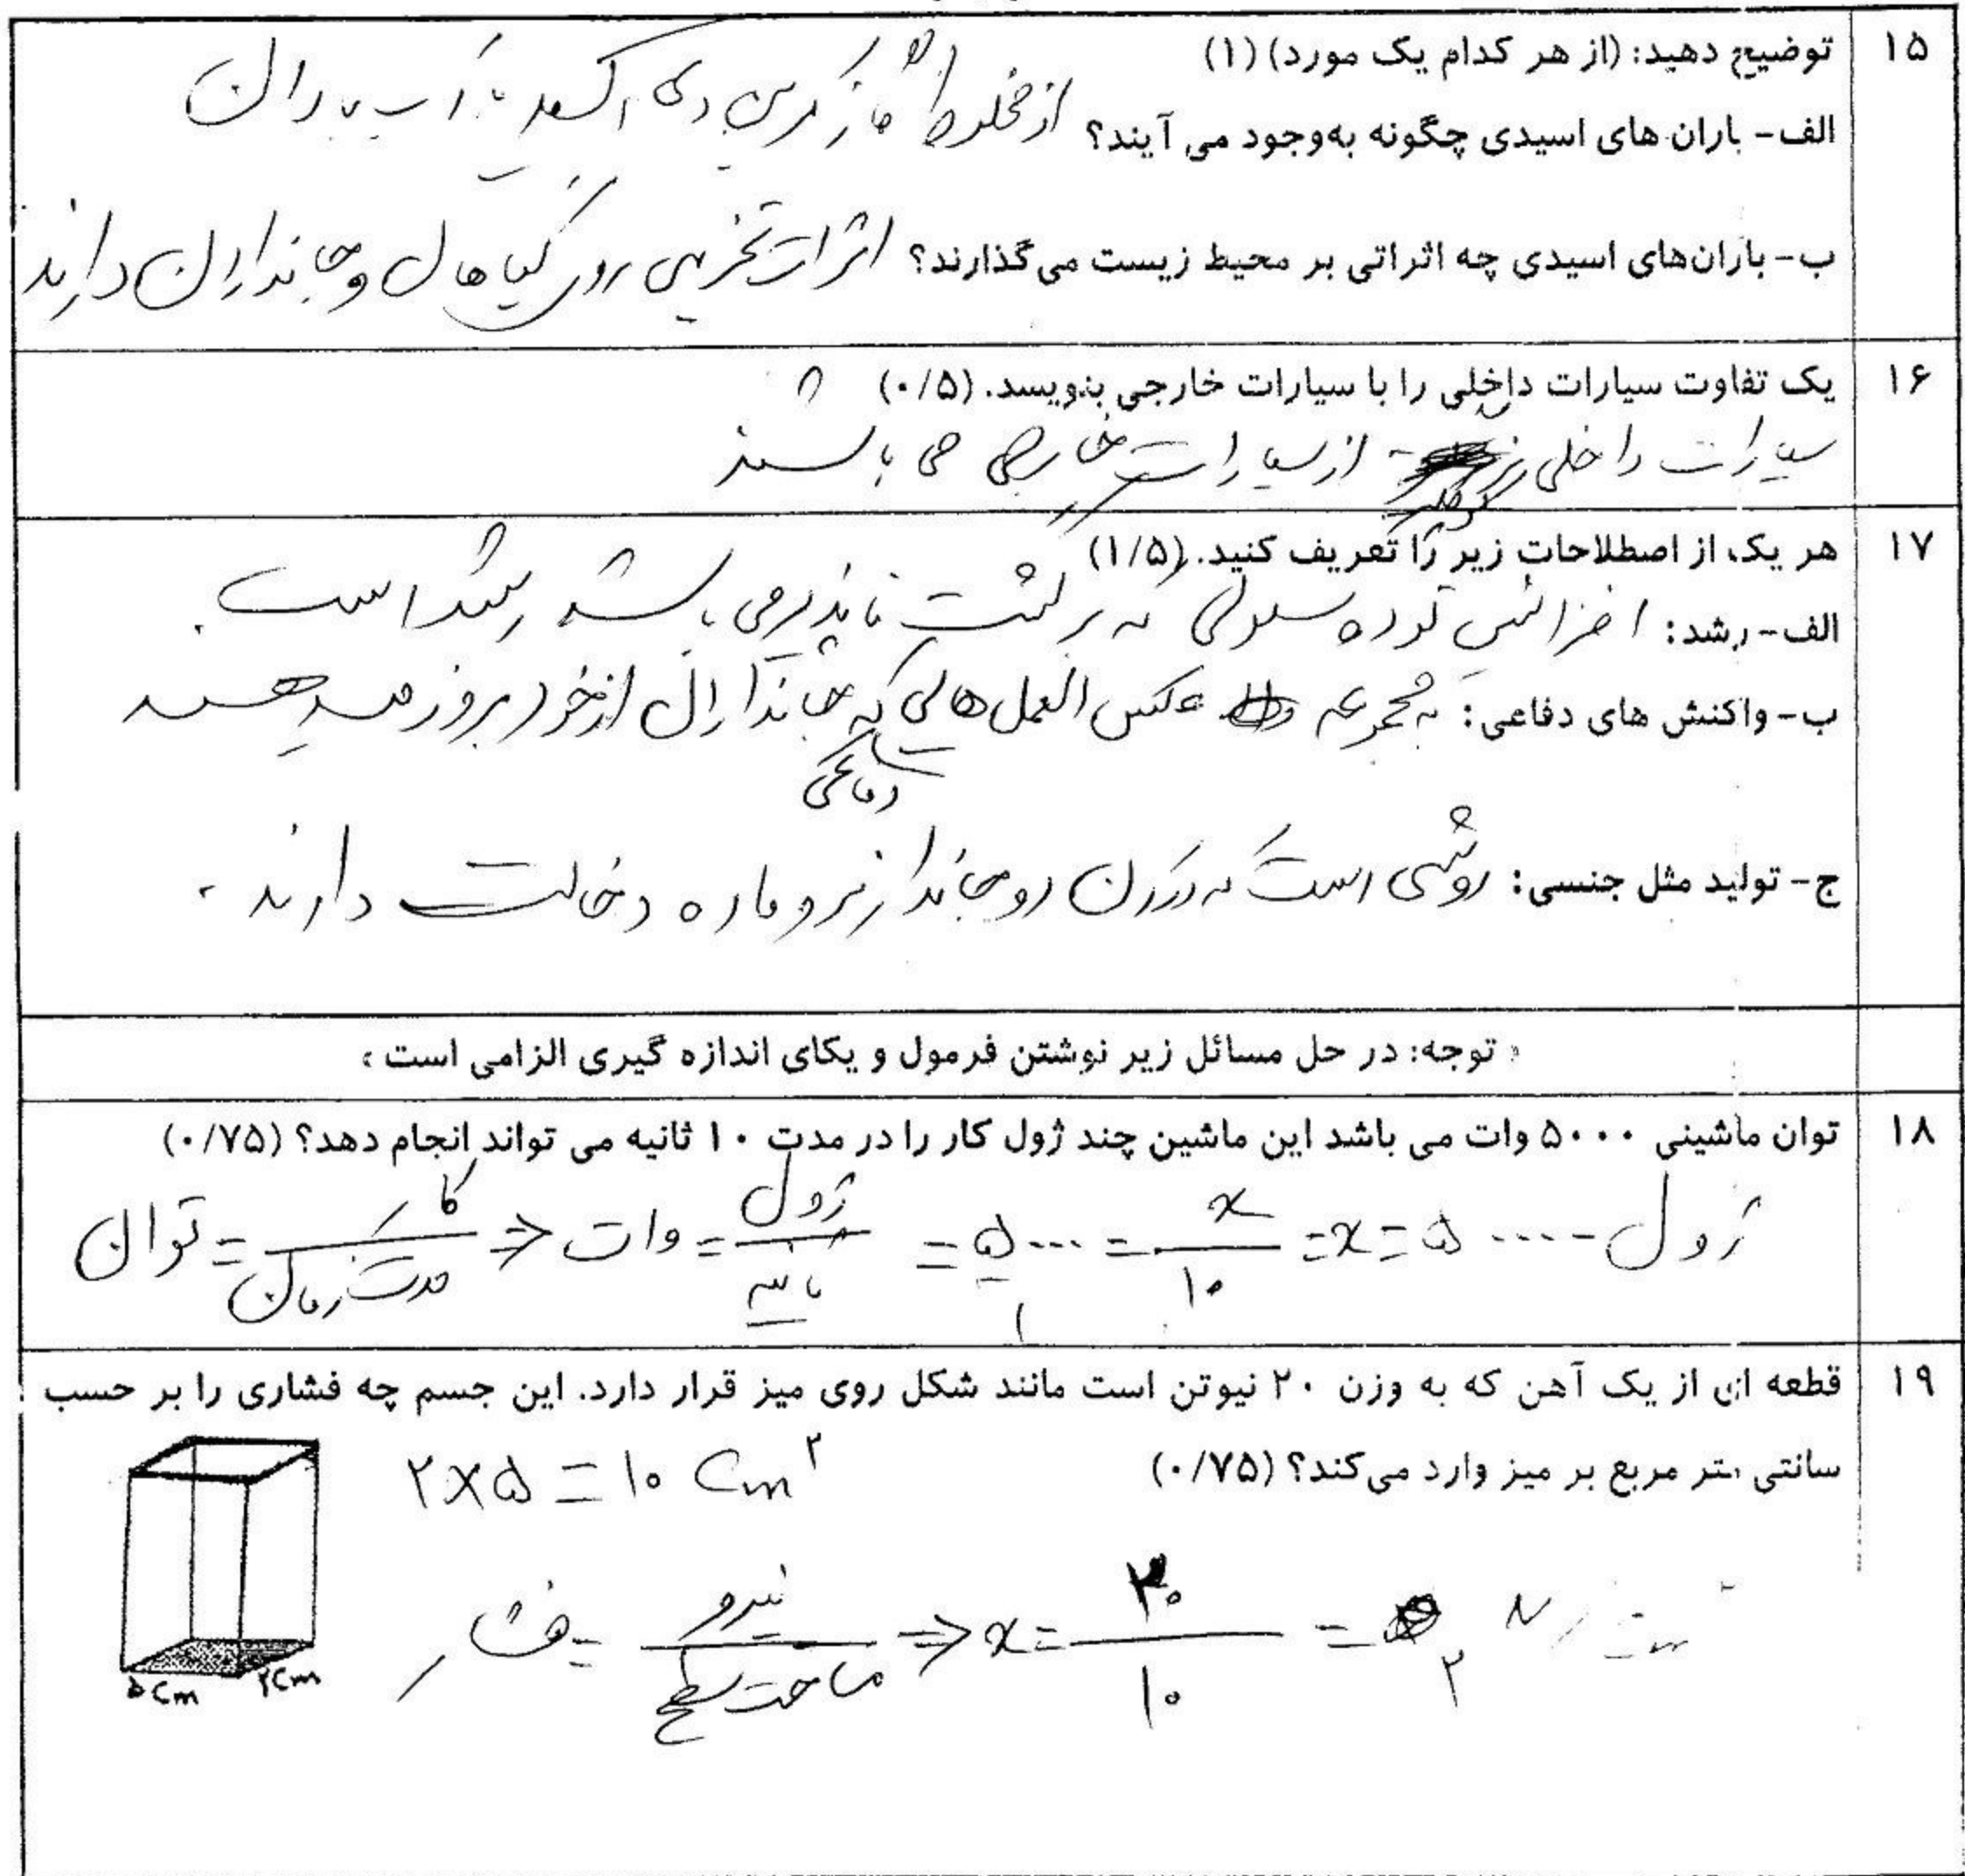 ۱۵
توضیح دهید: (از هر کدام یک مورد) (۱)
الف- باران های اسیدی چگونه به‌وجود می آیند؟ از مخلوط گاز کربن دی اکسید با آب باران
ب- باران‌های اسیدی چه اثراتی بر محیط زیست می‌گذارند؟ اثرات تخریبی روی گیاهان و جانداران دارند
۱۶
یک تفاوت سیارات داخلی را با سیارات خارجی بنویسد. (۰/۵)
سیارات داخلی از سیارات خارجی می باشند
۱۷
هر یک از اصطلاحات زیر را تعریف کنید. (۱/۵)
الف- رشد: افزائش توده سلولی که برگشت ناپذیر می باشد رشد است.
ب- واکنش های دفاعی: به مجموعه عکس العمل هائی که جانداران از خود بروز میدهند
دفاعی
ج- تولید مثل جنسی: روشی است که در آن دو جاندار نر و ماده دخالت دارند.
توجه: در حل مسائل زیر نوشتن فرمول و یکای اندازه گیری الزامی است
۱۸
توان ماشینی ۵۰۰۰ وات می باشد این ماشین چند ژول کار را در مدت ۱۰ ثانیه می تواند انجام دهد؟ (۰/۷۵)
توان = کار / مدت زمان ⇒ وات = ژول / ثانیه = ۵۰۰۰ / ۱ = x / ۱۰ = x = ۵۰۰۰۰ ژول
۱۹
قطعه ای از یک آهن که به وزن ۲۰ نیوتن است مانند شکل روی میز قرار دارد. این جسم چه فشاری را بر حسب
سانتی متر مربع بر میز وارد می‌کند؟ (۰/۷۵)
۲×۵ = ۱۰ Cm۲
فشار = نیرو / مساحت سطح ⇒ x = ۲۰ / ۱۰ = ۲ N
۵Cm ۲Cm